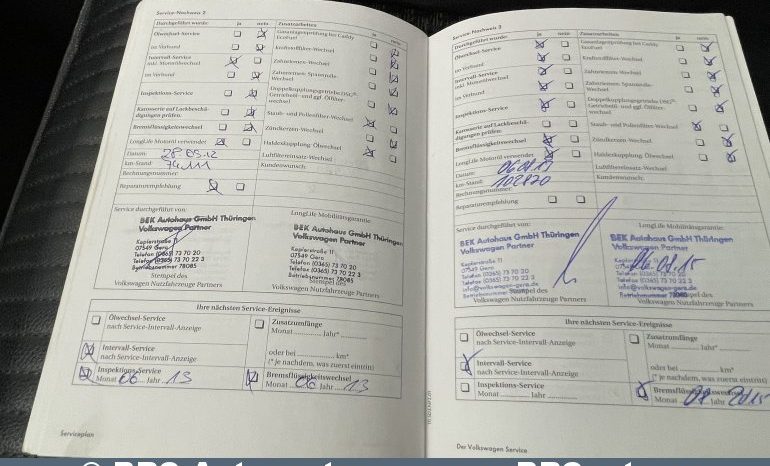 Service-Nachweis 2
Durchgeführt wurde: ja nein Zusatzarbeiten ja nein
Ölwechsel-Service
Gasanlagenprüfung bei Caddy EcoFuel
im Verbund
Kraftstofffilter-Wechsel
Intervall-Service
inkl. Motorölwechsel
Zahnriemen-Wechsel
im Verbund
Zahnriemen-Spannrolle-
Wechsel
Inspektions-Service
Doppelkupplungsgetriebe DSG®
Getriebeöl- und ggf. Ölfilter-
wechsel
Karosserie auf Lackbeschä-
digungen prüfen:
Staub- und Pollenfilter-Wechsel
Bremsflüssigkeitswechsel
Zündkerzen-Wechsel
LongLife Motoröl verwendet
Haldexkupplung: Ölwechsel
Datum: 28.05.12
Luftfiltereinsatz-Wechsel
km-Stand: 74111
Kundenwunsch:
Rechnungsnummer:
Reparaturempfehlung
Service durchgeführt von:
LongLife Mobilitätsgarantie:
BEK Autohaus GmbH Thüringen
Volkswagen Partner
Kapferstraße 11
07549 Gera
Telefon (0365) 73 70 20
Telefax (0365) 73 70 22 3
Betriebsnummer 78085
Stempel des
Volkswagen Nutzfahrzeuge Partners
BEK Autohaus GmbH Thüringen
Volkswagen Partner
Kapferstraße 11
07549 Gera
Telefon (0365) 73 70 20
Telefax (0365) 73 70 22 3
Betriebsnummer 78085
Stempel des
Volkswagen Nutzfahrzeuge Partners
Ihre nächsten Service-Ereignisse
Ölwechsel-Service
nach Service-Intervall-Anzeige
Zusatzumfänge
Monat Jahr*
Intervall-Service
nach Service-Intervall-Anzeige
oder bei km*
(* je nachdem, was zuerst eintritt)
Inspektions-Service
Monat 06 Jahr 13
Bremsflüssigkeitswechsel
Monat 06 Jahr 13
Serviceplan
Service-Nachweis 3
Durchgeführt wurde: ja nein Zusatzarbeiten ja nein
Ölwechsel-Service
Gasanlagenprüfung bei Caddy
EcoFuel
im Verbund
Kraftstofffilter-Wechsel
Intervall-Service
inkl. Motorölwechsel
Zahnriemen-Wechsel
im Verbund
Zahnriemen-Spannrolle-
Wechsel
Inspektions-Service
Doppelkupplungsgetriebe DSG®
Getriebeöl- und ggf. Ölfilter-
wechsel
Karosserie auf Lackbeschä-
digungen prüfen:
Staub- und Pollenfilter-Wechsel
Bremsflüssigkeitswechsel
Zündkerzen-Wechsel
LongLife Motoröl verwendet
Haldexkupplung: Ölwechsel
Datum:
Luftfiltereinsatz-Wechsel
km-Stand: 102820
Kundenwunsch:
Rechnungsnummer:
Reparaturempfehlung
Service durchgeführt von:
LongLife Mobilitätsgarantie:
BEK Autohaus GmbH Thüringen
Volkswagen Partner
Kapferstraße 11
07549 Gera
Telefon (0365) 73 70 20
Telefax (0365) 73 70 22 3
info@volkswagen-gera.de
Betriebsnummer 78085
Stempel des
Volkswagen Nutzfahrzeuge Partners
BEK Autohaus GmbH Thüringen
Volkswagen Partner
Kapferstraße 11
07549 Gera
Telefon (0365) 73 70 20
Telefax (0365) 73 70 22 3
info@volkswagen-gera.de
Betriebsnummer 78085
Stempel des
Volkswagen Nutzfahrzeuge Partners
Ihre nächsten Service-Ereignisse
Ölwechsel-Service
nach Service-Intervall-Anzeige
Zusatzumfänge
Monat Jahr*
Intervall-Service
nach Service-Intervall-Anzeige
oder bei km*
(* je nachdem, was zuerst eintritt)
Inspektions-Service
Monat Jahr
Bremsflüssigkeitswechsel
Monat Jahr 2015
Der Volkswagen Service